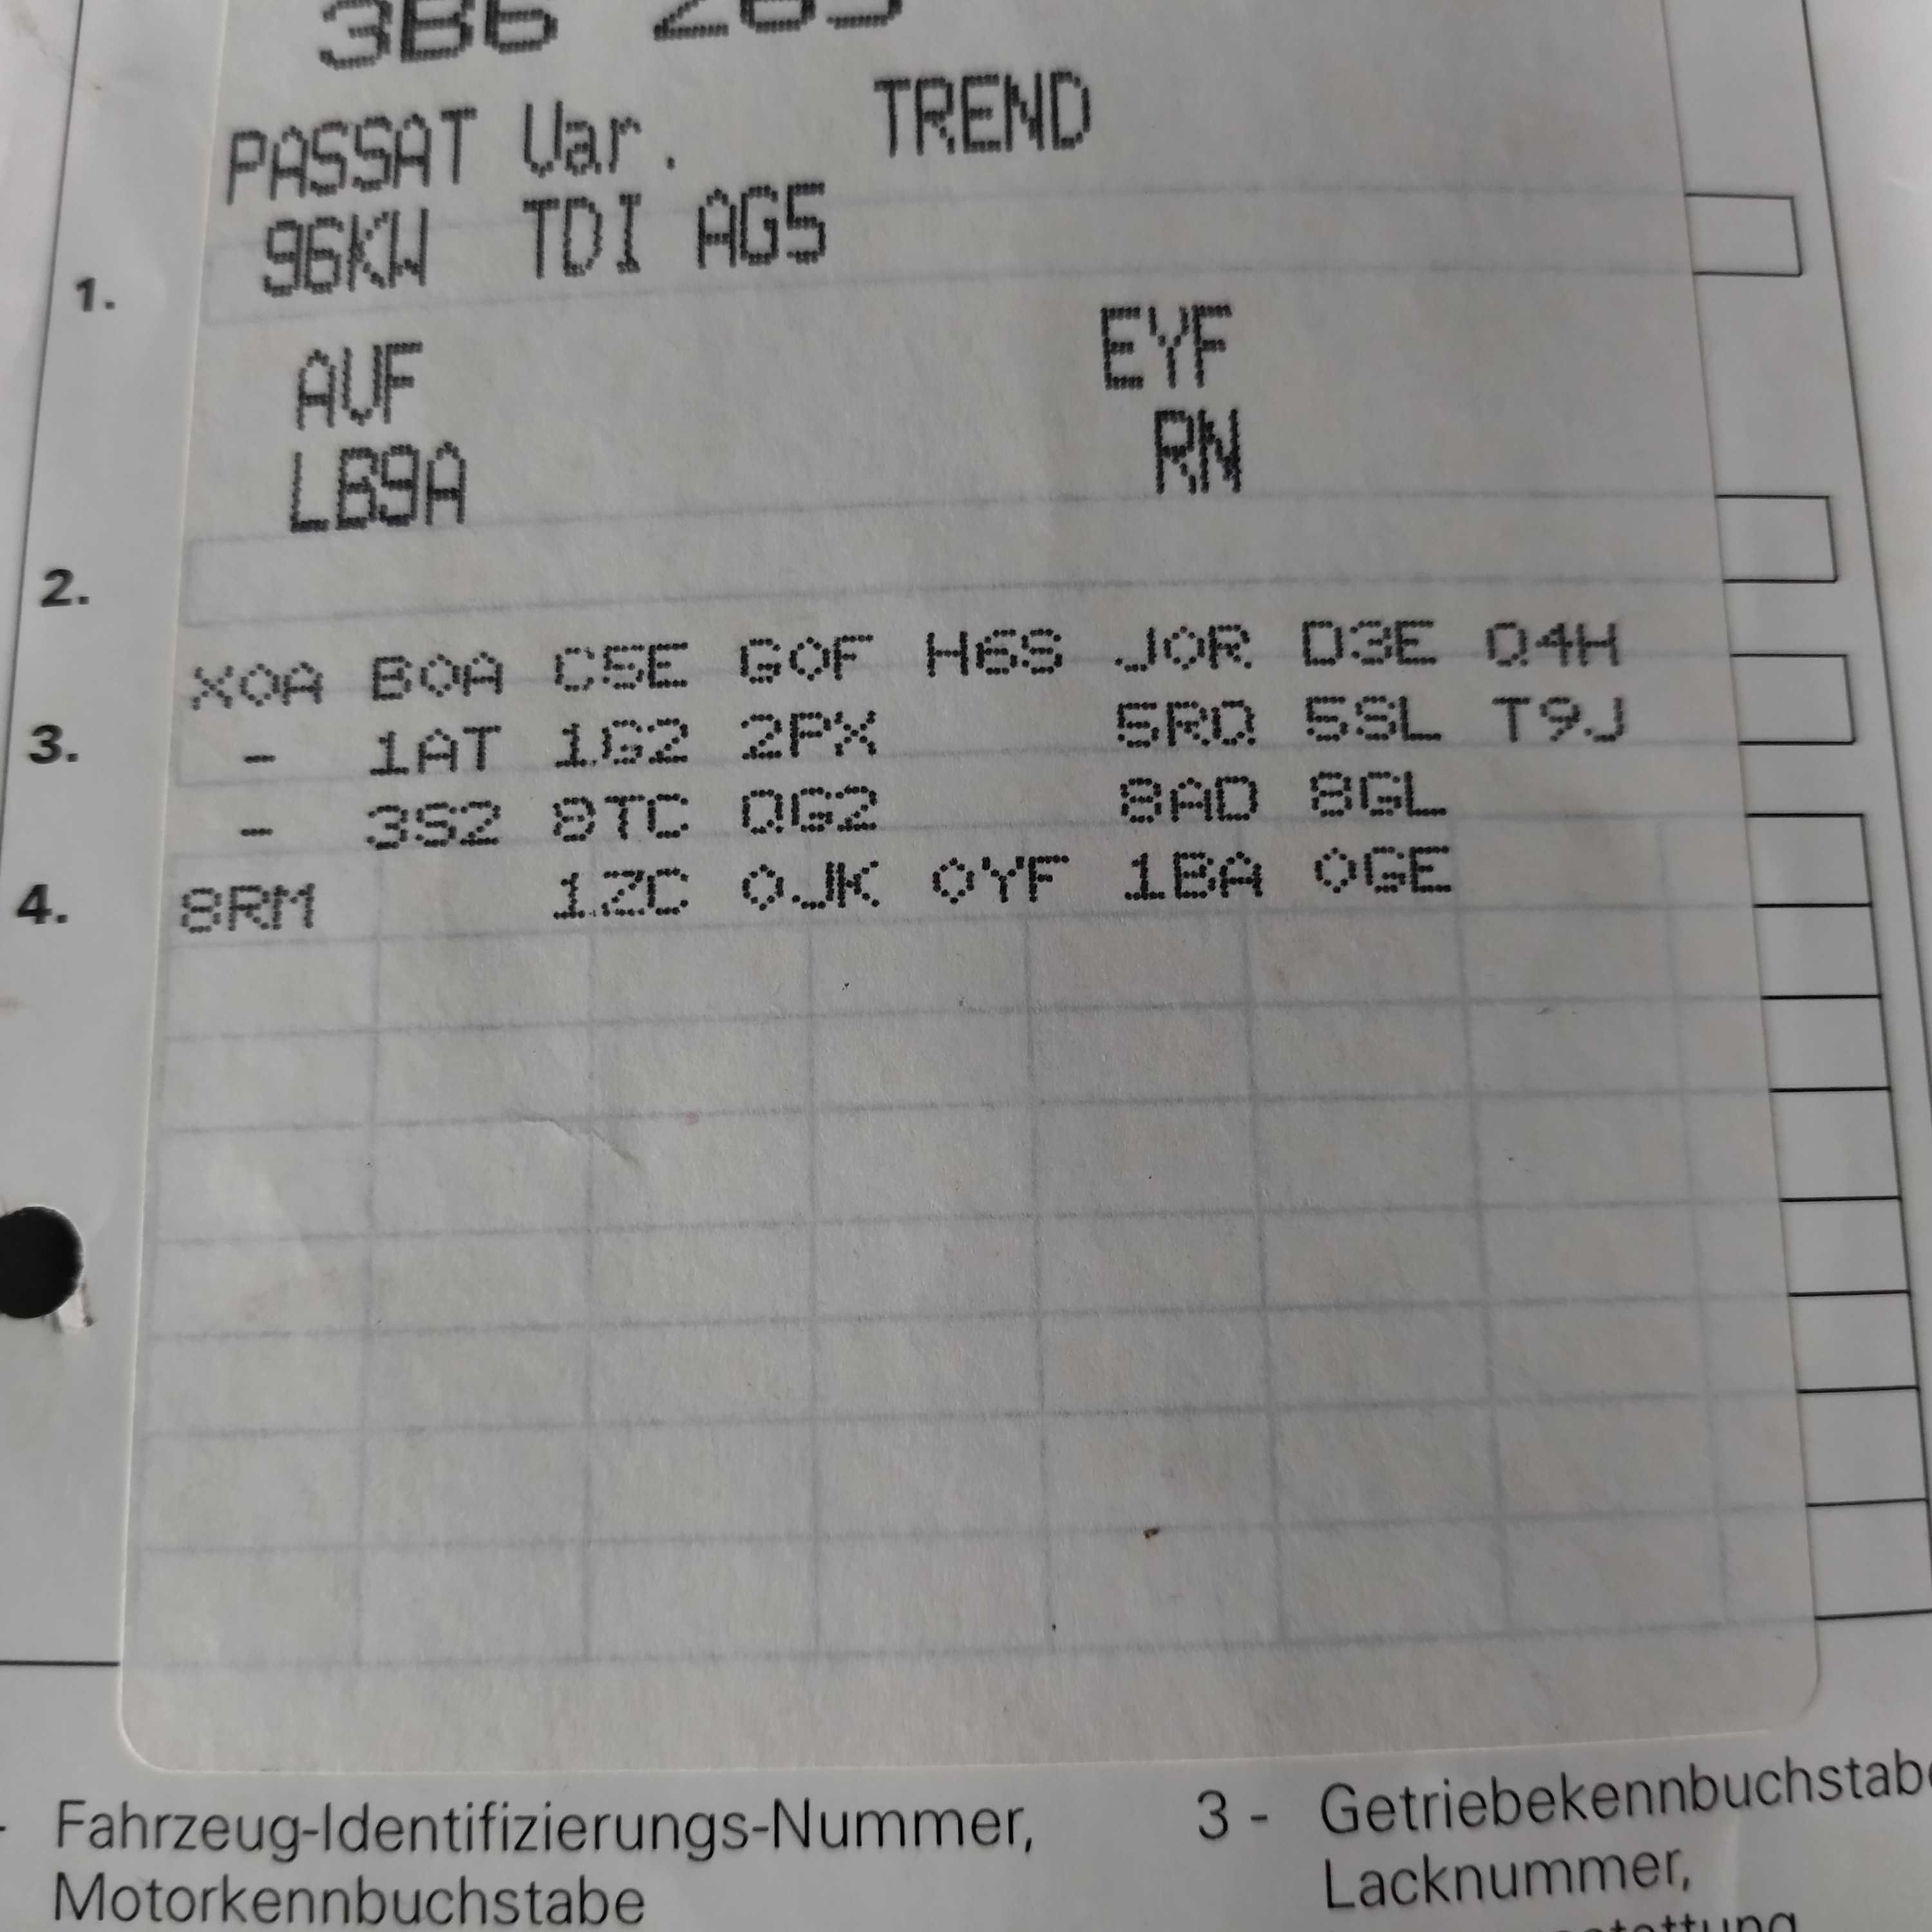 3B6 265
PASSAT Var. TREND
96KW TDI AG5
1.
AVF EYF
LB9A RN
2.
X0A B0A C5E G0F H6S J0R D3E Q4H
3. - 1AT 1G2 2PX 5RQ 5SL T9J
- 3S2 8TC QG2 8AD 8GL
4. 8RM 1ZC 0JK 0YF 1BA 0GE
- Fahrzeug-Identifizierungs-Nummer,
Motorkennbuchstabe
3 - Getriebekennbuchstabe
Lacknummer,